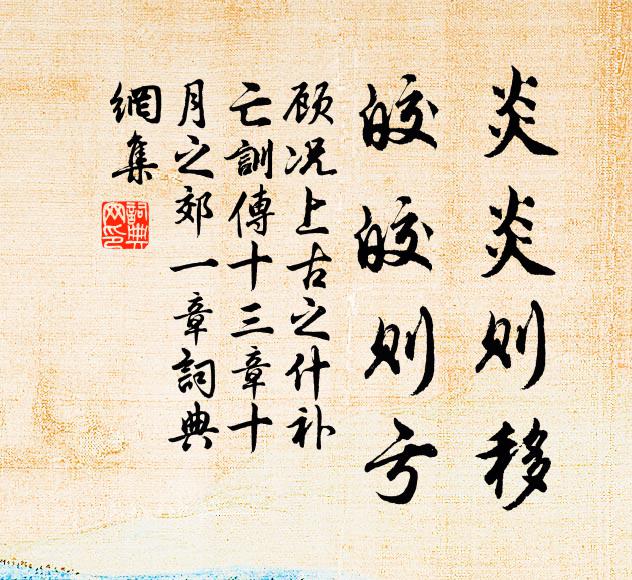 炎炎则移
皎皎则亏
顾况上古之什补
亡訓傳十三章十
月之郊一章詞典
網集
詞典网印